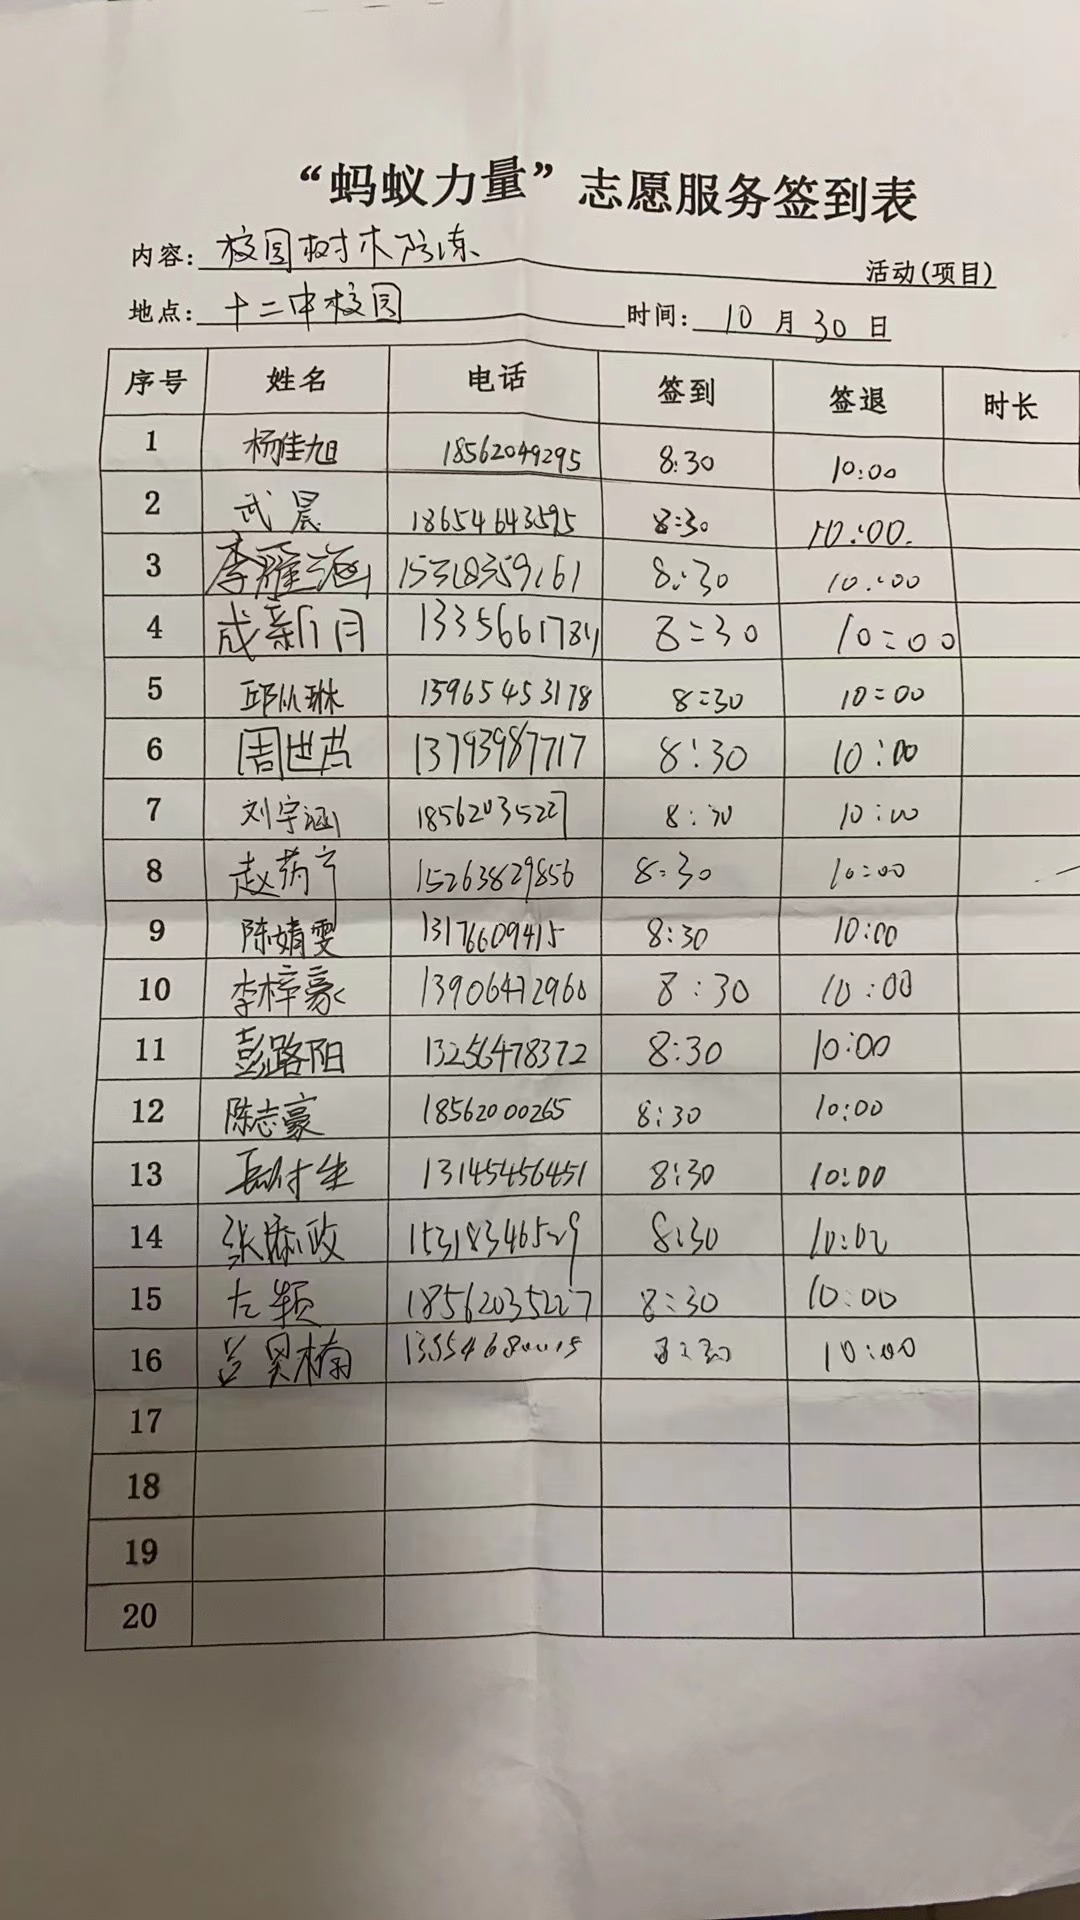 “蚂蚁力量”志愿服务签到表
内容：校园树木防冻 活动(项目)
地点：十二中校园 时间：10月30日
序号 姓名 电话 签到 签退 时长
1 杨佳旭 18562049295 8:30 10:00
2 武晨 18654643595 8:30 10:00
3 李雁涵 15318359161 8:30 10:00
4 成新月 8:30 10:00
5 邱从琳 13965453178 8:30 10:00
6 周世 13793987717 8:30 10:00
7 刘宇涵 18562035227 8:30 10:00
8 赵 15263829856 8:30 10:00
9 陈婧雯 13176609415 8:30 10:00
10 李梓豪 13906472960 8:30 10:00
11 彭路阳 13256478372 8:30 10:00
12 陈志豪 18562000265 8:30 10:00
13 13145456451 8:30 10:00
14 张添政 15318346529 8:30 10:00
15 左颖 18562035227 8:30 10:00
16 昊楠 8:30 10:00
17
18
19
20